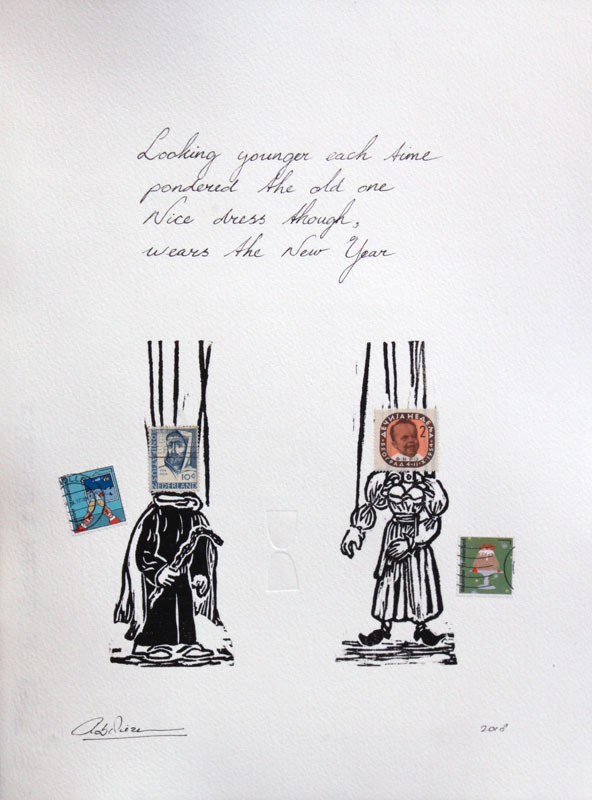 Looking younger each time
pondered the old one
Nice dress though,
wears the New Year
10c
NEDERLAND
2
2018